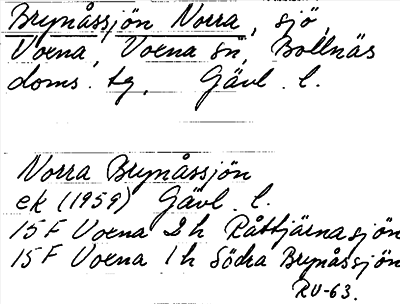 Brynåssjön Norra, sjö,
Voxna, Voxna sn, Bollnäs
doms. tg, Gävl. l.
Norra Brynåssjön
ek (1959) Gävl. l.
15 F Voxna 2 h Råttjärnasjön
15 F Voxna 1 h Södra Brynåssjön
RU-63.